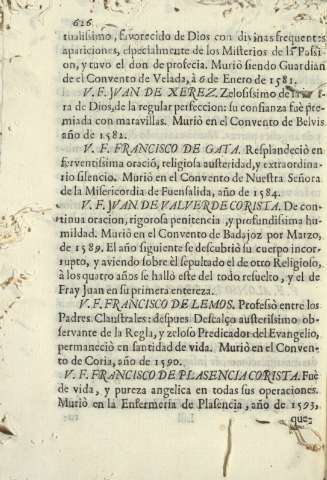 626
tualissimo, favorecido de Dios con divinas frequentes
apariciones, especialmente de los Misterios de la Passi-
on, y tuvo el don de profecia. Murió siendo Guardian
de el Convento de Velada, à 6 de Enero de 1581.
V. F. JUAN DE XEREZ. Zelosissimo de la
ra de Dios, de la regular perfeccion: su confianza fuè pre-
miada con maravillas. Murió en el Convento de Belvis
año de 1582.
V. F. FRANCISCO DE GATA. Resplandeció en
ferventissima oració, religiosa austeridad, y extraordina-
rio silencio. Murió en el Convento de Nuestra Señora
de la Misericordia de Fuensalida, año de 1584.
V. F. JUAN DE VALVERDE CORISTA. De con-
tinua oracion, rigorosa penitencia, y profundissima hu-
mildad. Murió en el Convento de Badajoz por Marzo,
de 1589. El año siguiente se descubrió su cuerpo incor-
rupto, y aviendo sobre èl sepultado el de otro Religioso,
à los quatro años se hallò este del todo resuelto, y el de
Fray Juan en su primera entereza.
V. F. FRANCISCO DE LEMOS. Professò entre los
Padres Claustrales: despues Descalço austerissimo ob-
servante de la Regla, y zeloso Predicador del Evangelio,
permaneciò en santidad de vida. Murió en el Conven-
to de Coria, año de 1590.
V. F. FRANCISCO DE PLASENCIA CORISTA. Fuè
de vida, y pureza angelica en todas sus operaciones.
Murió en la Enfermeria de Plasencia, año de 1593,
que